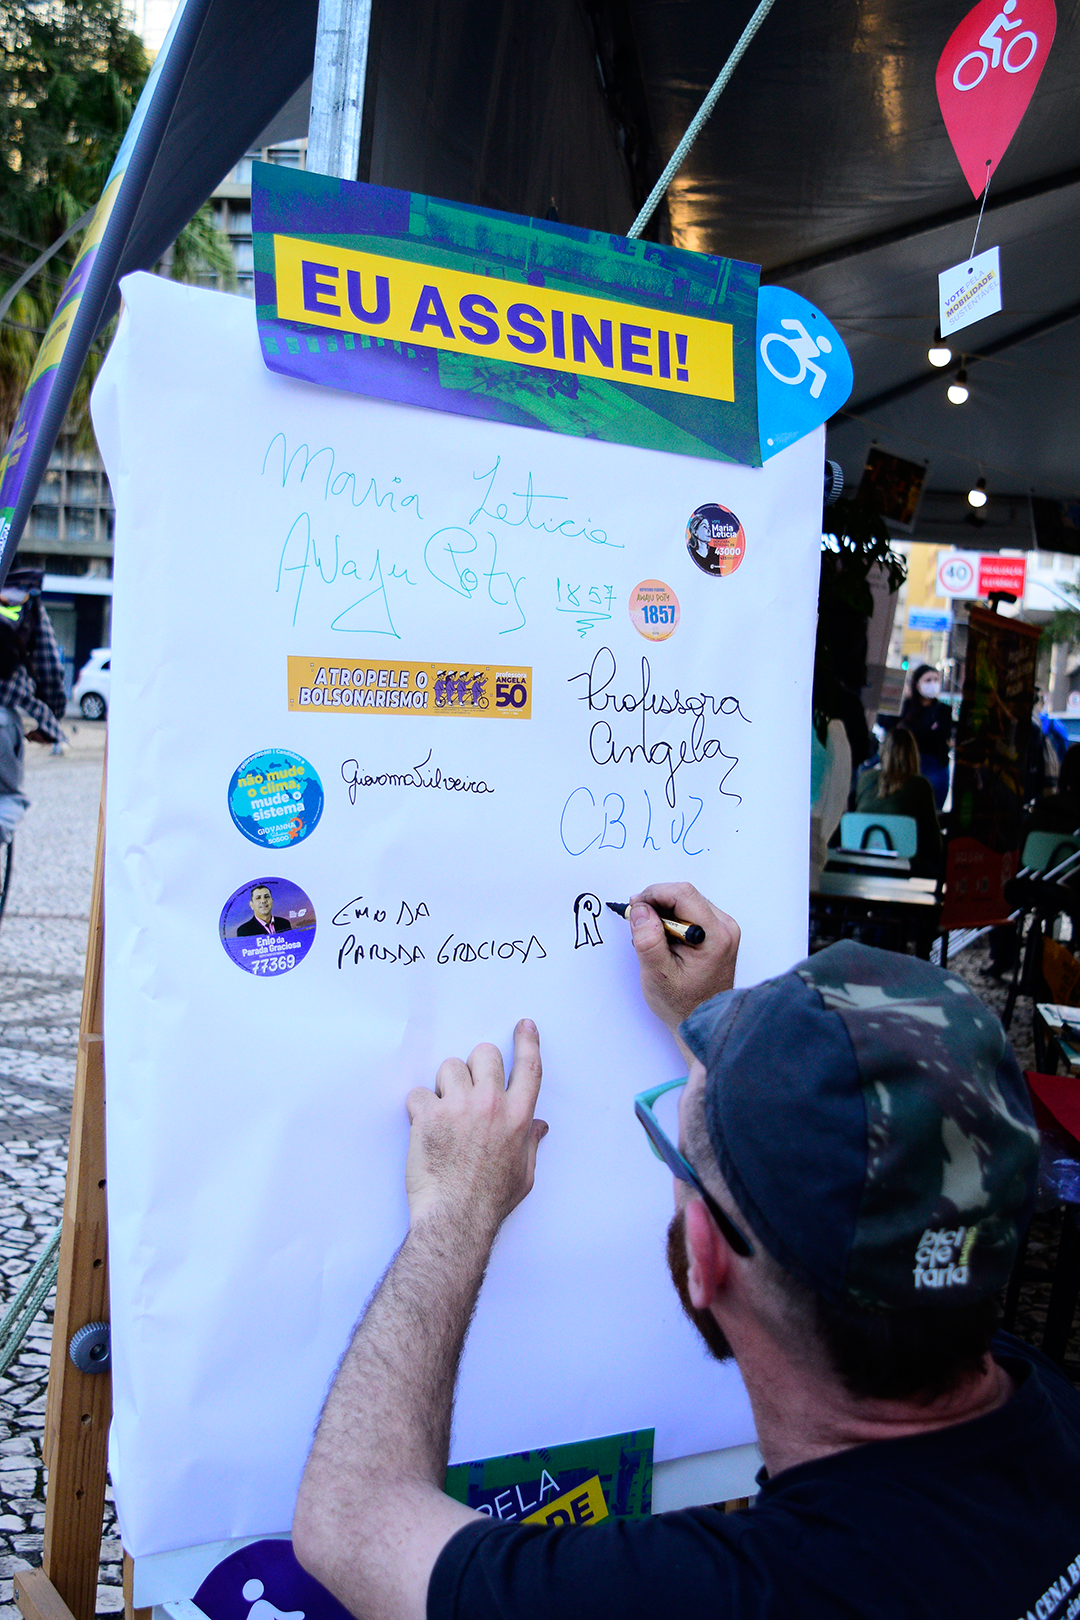 EU ASSINEI!
VOTE PELA
MOBILIDADE
SUSTENTÁVEL
Maria Leticia
VOTE
Maria
Letícia
43000
Awaju Poty 1857
AWAJU POTY
1857
40
FISCALIZAÇÃO
ELETRÔNICA
ATROPELE O
BOLSONARISMO!
ANGELA
50
Professora
Angela
não mude
o clima,
mude o
sistema
GIOVANNA
Giovanna Silveira
CB Luz
Enio da
Parada Graciosa
77369
ENIO DA
PARADA GRACIOSA
R
bici
cle
taria
PELA
DE
CENA